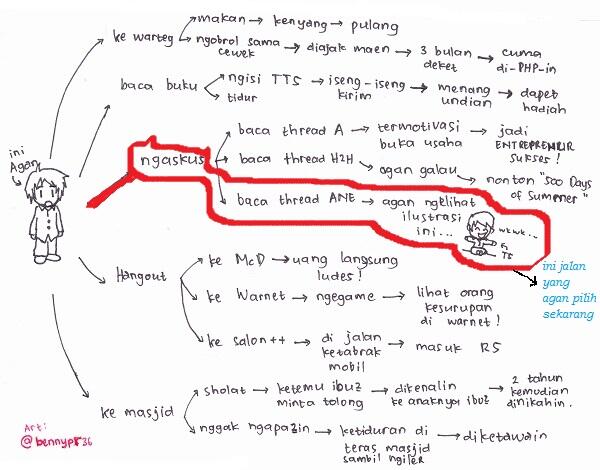 ini
Agan
ke warteg
makan → kenyang → pulang
ngobrol sama
cewek
→ diajak maen → 3 bulan
deket
→ cuma
di-PHP-in
baca buku
ngisi TTS → iseng-iseng
kirim
→ menang
undian
→ dapet
hadiah
tidur
ngaskus
baca thread A → termotivasi
buka usaha
→ jadi
ENTREPRENEUR
SUKSES!
baca thread H2H → agan galau → nonton "500 Days
of Summer"
baca thread ANE → agan ngelihat
ilustrasi
ini...
wkwk...
ini jalan
yang
agan pilih
sekarang
Hangout
ke McD → uang langsung
ludes!
ke Warnet → ngegame → lihat orang
kesurupan
di warnet!
ke salon++ → di jalan
ketabrak
mobil
→ masuk RS
ke masjid
sholat → ketemu ibu2
minta tolong
→ dikenalin
ke anaknya ibu2
→ 2 tahun
kemudian
dinikahin.
nggak ngapa2in → ketiduran di
teras masjid
sambil ngiler
→ diketawain
Art: